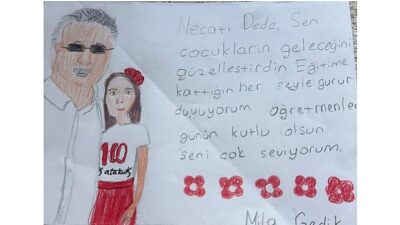 Necati Dede. Sen
çocukların geleceğini
güzelleştirdin Eğitime
kattığın her şeyle gurur
duyuyorum öğretmenler
günün kutlu olsun
seni çok seviyorum.
110
atatürk
Mila Gedik